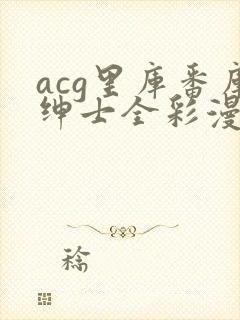 acg里库番库
绅士全彩漫
稔